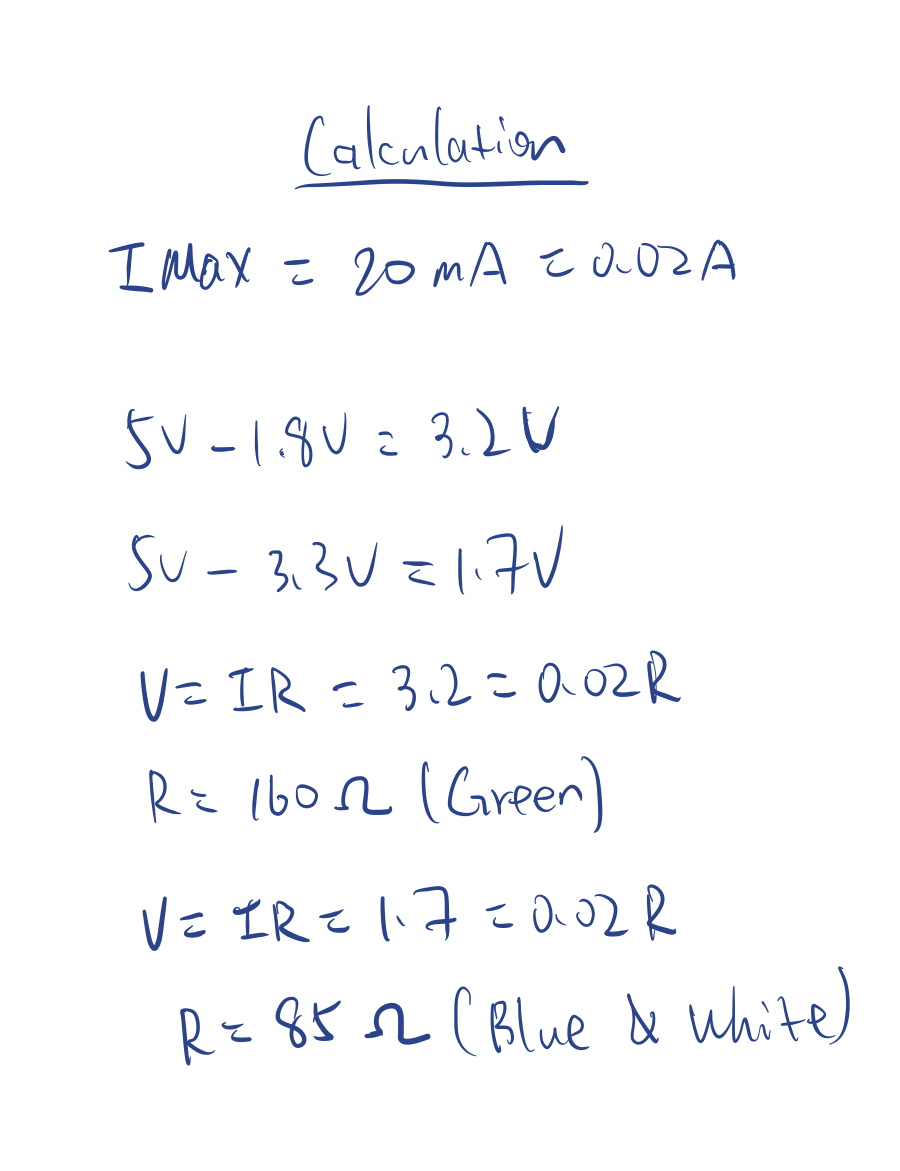 Calculation
I Max = 20 mA = 0.02A
5V - 1.8V = 3.2V
5V - 3.3V = 1.7V
V = IR = 3.2 = 0.02R
R = 160 Ω (Green)
V = IR = 1.7 = 0.02R
R = 85 Ω (Blue & White)